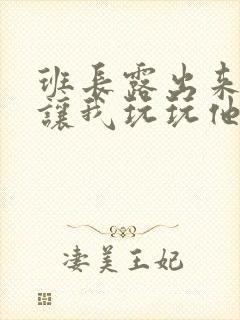 班長露出来
讓我玩玩他
淒美王妃